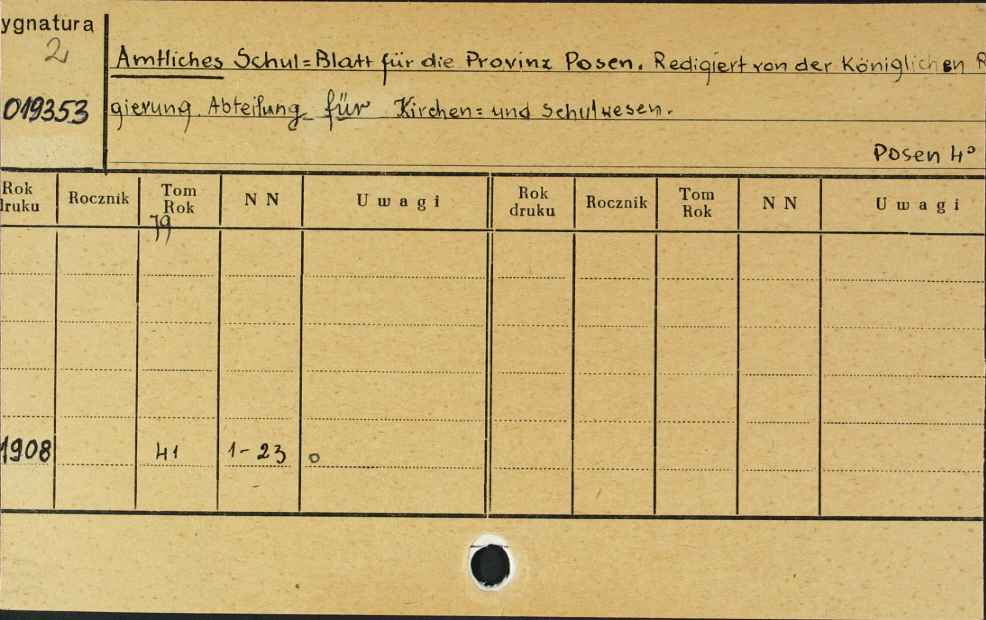 ygnatura
2
019353
Amtliches Schul=Blatt für die Provinz Posen. Redigiert von der Königlichen R
gierung. Abteilung für Kirchen= und Schulwesen.
Posen 4°
Rok druku Rocznik Tom Rok N N Uwagi Rok druku Rocznik Tom Rok N N Uwagi
1908 41 1-23 o